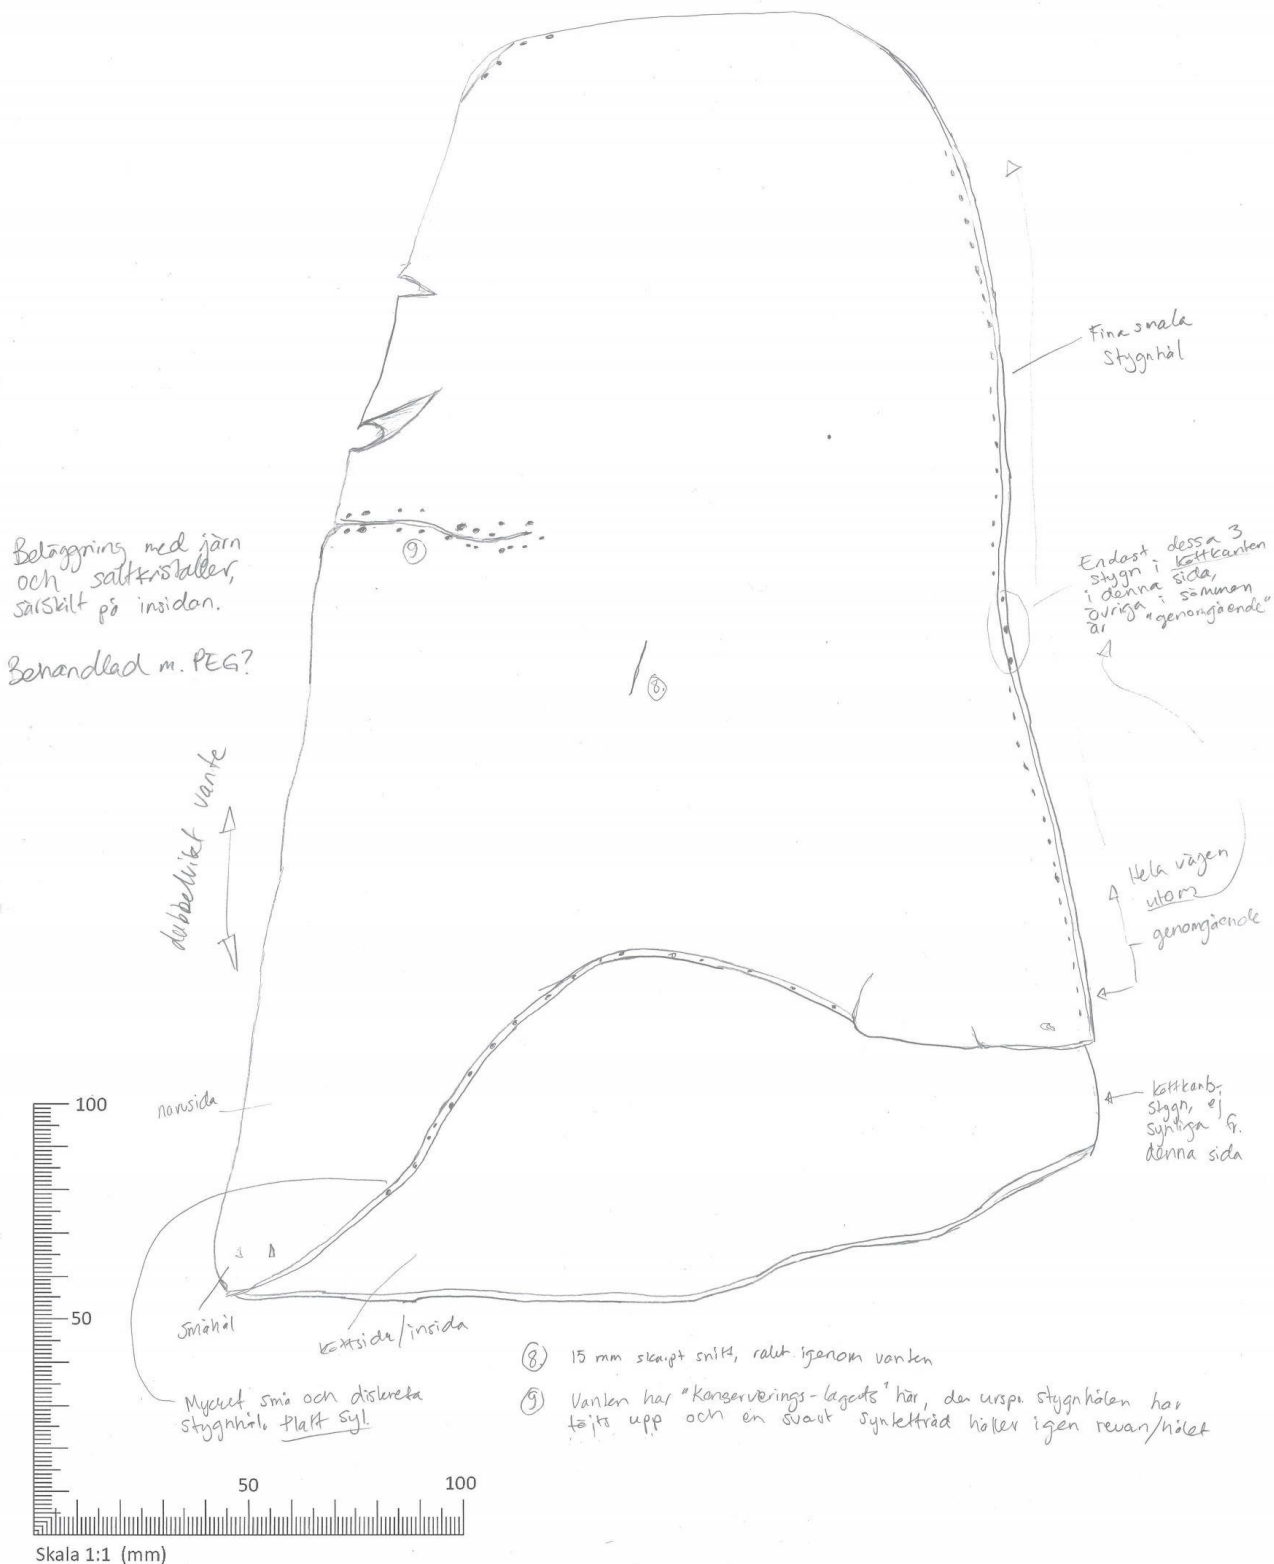 Fina smala
stygnhål
Beläggning med järn
och saltkristaller,
särskilt på insidan.
Behandlad m. PEG?
Endast dessa 3
stygn i köttkanten
i denna sida,
övriga i sömmen
är "genomgående"
dubbelvikt vante
Hela vägen
utom
genomgående
narvsida
köttkant-
stygn, ej
synliga fr.
denna sida
Småhål
köttsida/insida
Mycket små och diskreta
stygnhål. Platt syl.
9
8.
8. 15 mm skarpt snitt, rakt igenom vanten
9 Vanten har "Konserverings-lagats" här, de urspr. stygnhålen har
töjts upp och en svart syntettråd håller igen revan/hålet
100
50
50
100
Skala 1:1 (mm)